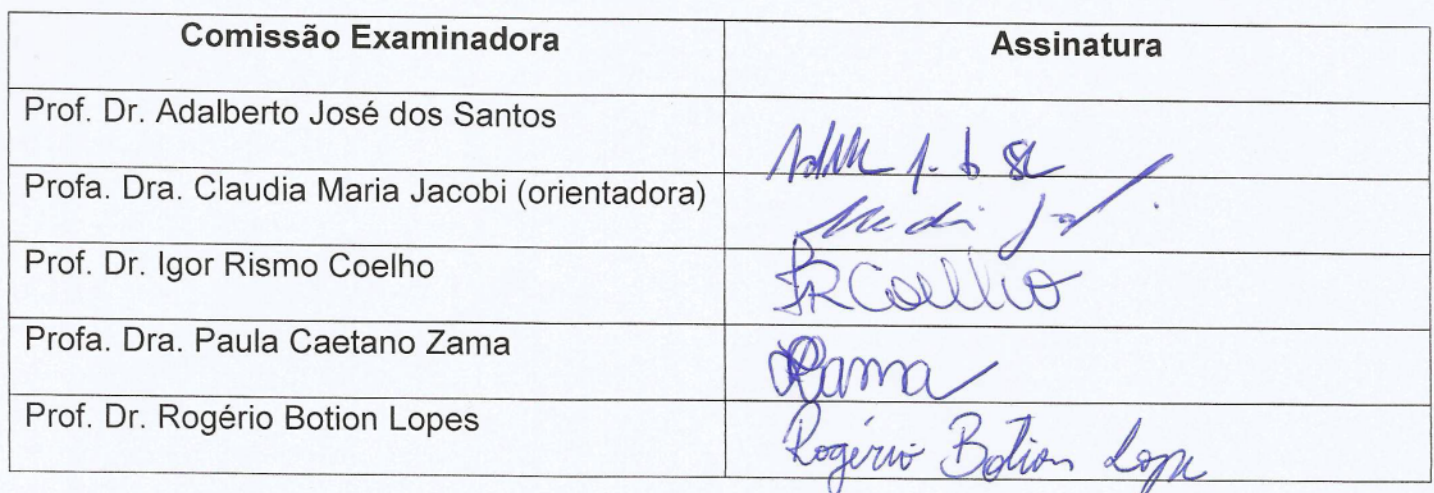 Comissão Examinadora Assinatura
Prof. Dr. Adalberto José dos Santos
Profa. Dra. Claudia Maria Jacobi (orientadora)
Prof. Dr. Igor Rismo Coelho IRCoelho
Profa. Dra. Paula Caetano Zama Zama
Prof. Dr. Rogério Botion Lopes Rogério Botion Lope